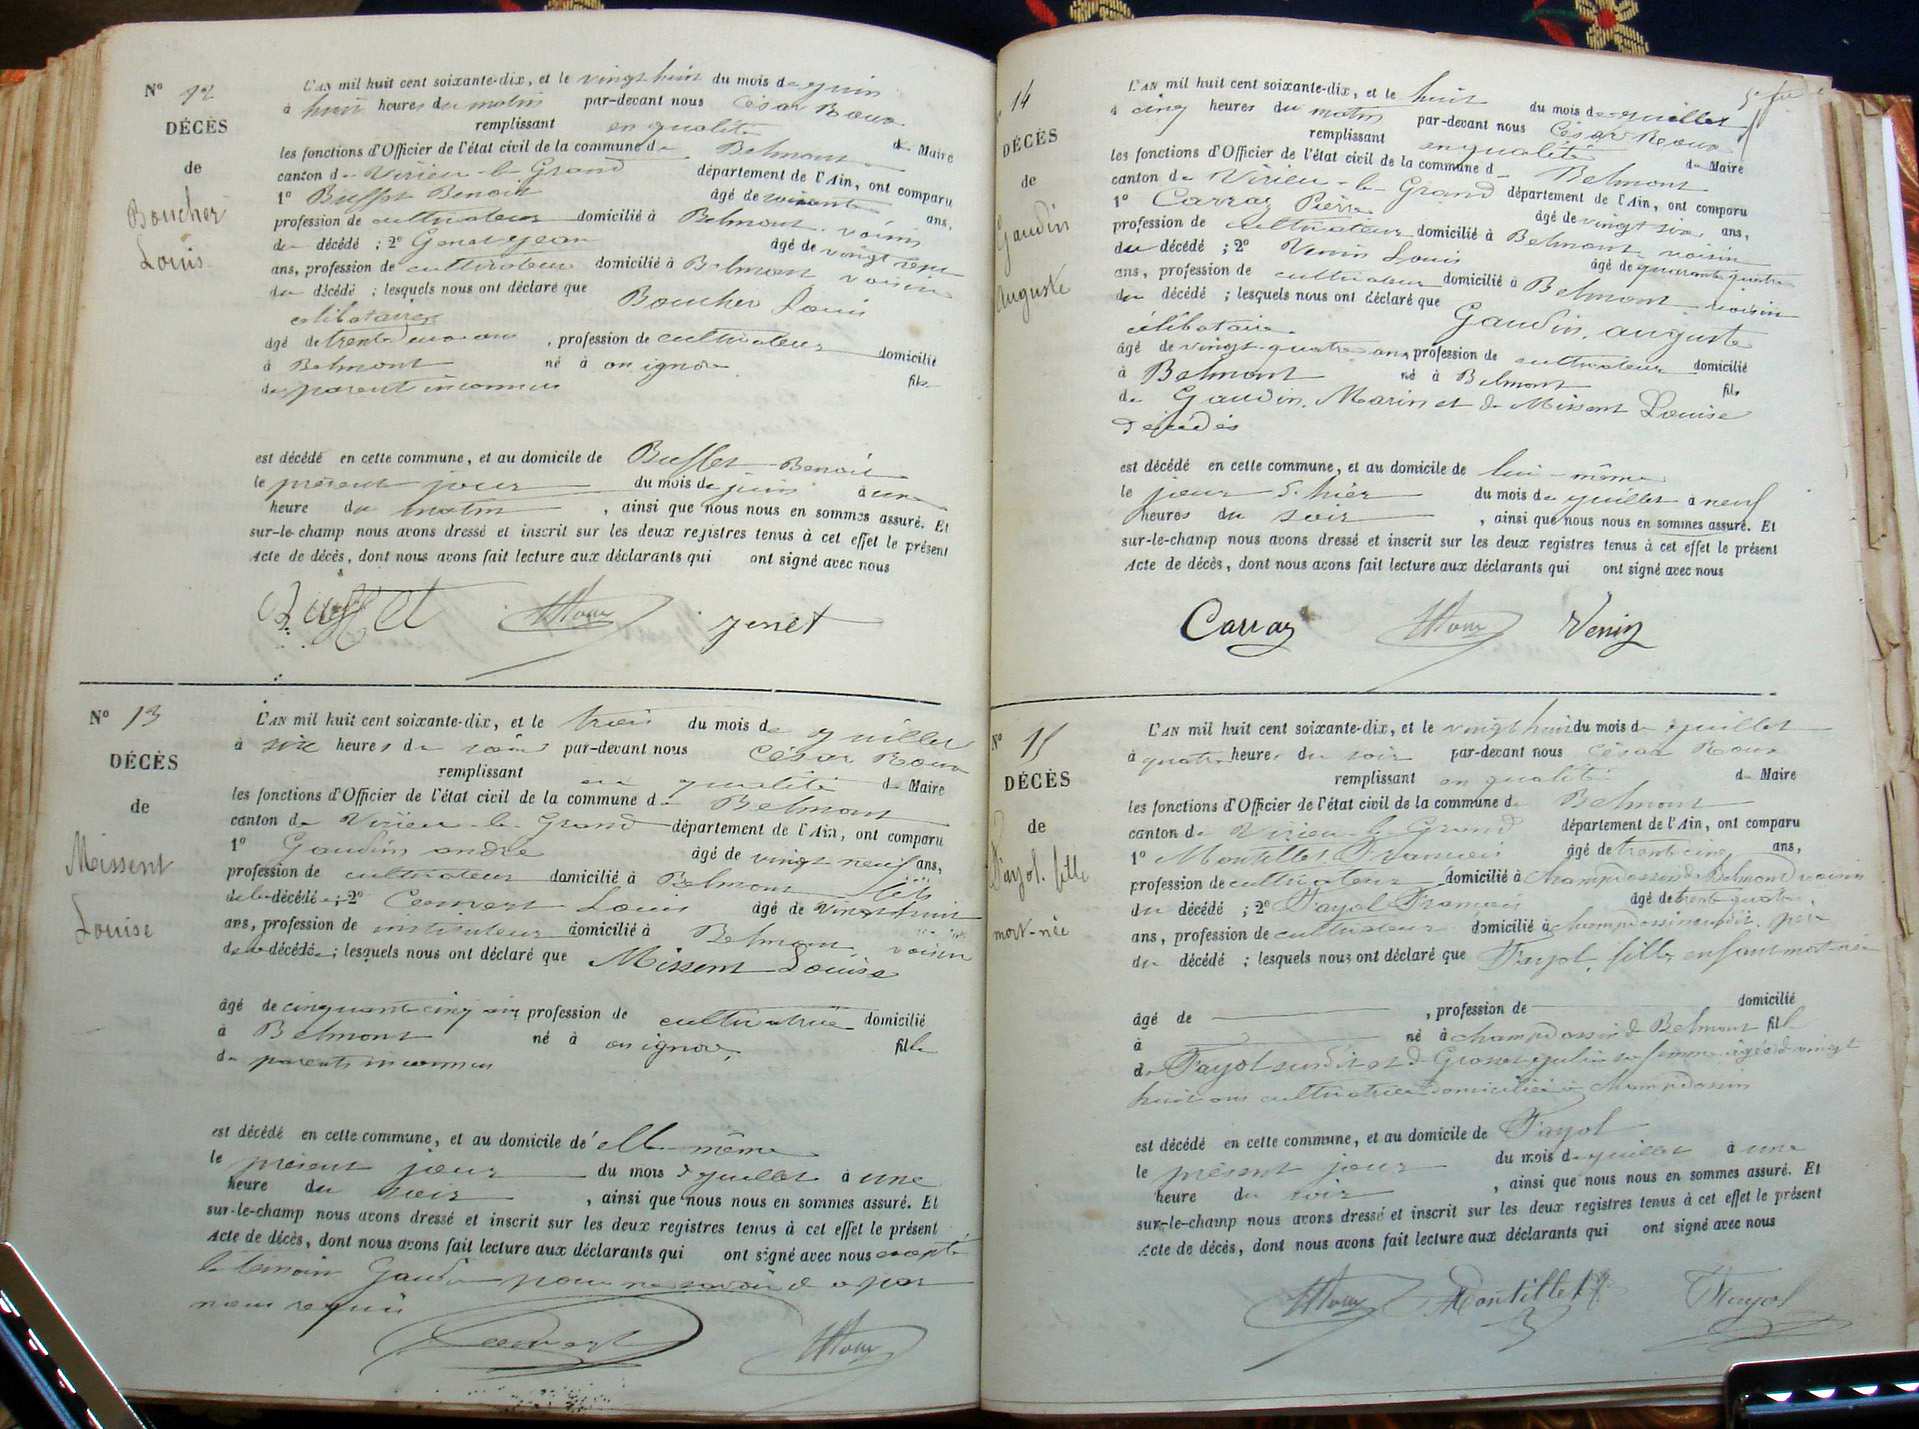 N° 12
DÉCÈS
de
Boucher
Louis
L'AN mil huit cent soixante-dix, et le vingt huit du mois de juin
à huit heures du matin par-devant nous César Roux
remplissant en qualité de Maire
les fonctions d'Officier de l'état civil de la commune de Belmont
canton de Virieu-le-Grand département de l'Ain, ont comparu
1° Buffet Benoit âgé de soixante ans,
profession de cultivateur domicilié à Belmont voisin
du décédé ; 2° Genet Jean âgé de vingt sept
ans, profession de cultivateur domicilié à Belmont voisin
du décédé ; lesquels nous ont déclaré que Boucher Louis
célibataire
âgé de trente deux ans , profession de cultivateur domicilié
à Belmont né à on ignore fils
de parent inconnus
est décédé en cette commune, et au domicile de Buffet Benoit
le présent jour du mois de juin à une
heure du matin , ainsi que nous nous en sommes assuré. Et
sur-le-champ nous avons dressé et inscrit sur les deux registres tenus à cet effet le présent
Acte de décès, dont nous avons fait lecture aux déclarants qui ont signé avec nous
Buffet Roux genet
N° 13
DÉCÈS
de
Missent
Louise
L'AN mil huit cent soixante-dix, et le trois du mois de juillet
à six heures du soir par-devant nous César Roux
remplissant en qualité de Maire
les fonctions d'Officier de l'état civil de la commune de Belmont
canton de Virieu-le-Grand département de l'Ain, ont comparu
1° Gaudin andré âgé de vingt neuf ans,
profession de cultivateur domicilié à Belmont fils
de la décédée ; 2° Louis âgé de vingt huit
ans, profession de instituteur domicilié à Belmont, voisin
de la décédée ; lesquels nous ont déclaré que Missent Louise
âgé de cinquante cinq ans profession de cultivatrice domicilié
à Belmont né à on ignore, fille
de parents inconnus
est décédé en cette commune, et au domicile de elle même
le présent jour du mois de juillet à une
heure du soir , ainsi que nous nous en sommes assuré. Et
sur-le-champ nous avons dressé et inscrit sur les deux registres tenus à cet effet le présent
Acte de décès, dont nous avons fait lecture aux déclarants qui ont signé avec nous excepté
le témoin Gaudin pour ne savoir de ce par
nous requis
Roux
14
DÉCÈS
de
Gaudin
Auguste
L'AN mil huit cent soixante-dix, et le huit du mois de juillet
à cinq heures du matin par-devant nous César Roux
remplissant en qualité de Maire
les fonctions d'Officier de l'état civil de la commune de Belmont
canton de Virieu-le-Grand département de l'Ain, ont comparu
1° Carraz Pierre âgé de vingt six ans,
profession de cultivateur domicilié à Belmont voisin
du décédé ; 2° Venin Louis âgé de quarante quatre
ans, profession de cultivateur domicilié à Belmont voisin
du décédé ; lesquels nous ont déclaré que Gaudin, auguste
célibataire
âgé de vingt-quatre ans, profession de cultivateur domicilié
à Belmont né à Belmont fils
de Gaudin, Marin et de Missent Louise
décédés
est décédé en cette commune, et au domicile de lui-même
le jour d'hier du mois de juillet à neuf
heures du soir , ainsi que nous nous en sommes assuré. Et
sur-le-champ nous avons dressé et inscrit sur les deux registres tenus à cet effet le présent
Acte de décès, dont nous avons fait lecture aux déclarants qui ont signé avec nous
Carraz Roux Venin
N° 15
DÉCÈS
de
Fayol fille
mort-née
L'AN mil huit cent soixante-dix, et le vingt huit du mois de juillet
à quatre heures du soir par-devant nous César Roux
remplissant en qualité de Maire
les fonctions d'Officier de l'état civil de la commune de Belmont
canton de Virieu-le-Grand département de l'Ain, ont comparu
1° Montillet François âgé de trente cinq ans,
profession de cultivateur domicilié à Champdossin de Belmont voisin
du décédé ; 2° Fayol François âgé de trente quatre
ans, profession de cultivateur domicilié à Champdossin susdit père
du décédé ; lesquels nous ont déclaré que Fayol, fille, enfant mort-née
âgé de , profession de domicilié
à né à Champdossin de Belmont fille
de Fayol susdit et de sa femme âgée de vingt
huit ans cultivatrice domiciliée à Champdossin
est décédé en cette commune, et au domicile de Fayol
le présent jour du mois de juillet à une
heure du soir , ainsi que nous nous en sommes assuré. Et
sur-le-champ nous avons dressé et inscrit sur les deux registres tenus à cet effet le présent
Acte de décès, dont nous avons fait lecture aux déclarants qui ont signé avec nous
Roux Montillet Fayol